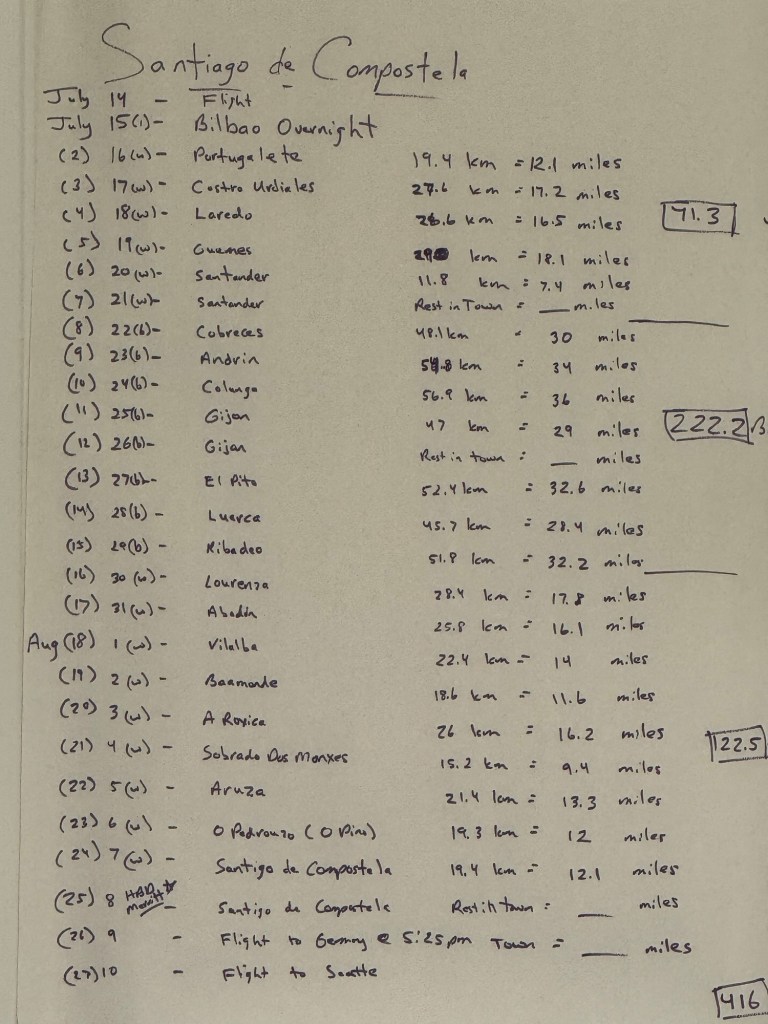 Santiago de Compostela
July 14 - Flight
July 15(1)- Bilbao Overnight
(2) 16(w)- Portugalete 19.4 km = 12.1 miles
(3) 17(w)- Castro Urdiales 27.6 km = 17.2 miles
(4) 18(w)- Laredo 26.6 km = 16.5 miles 71.3
(5) 19(w)- Guemes 29 km = 18.1 miles
(6) 20(w)- Santander 11.8 km = 7.4 miles
(7) 21(w)- Santander Rest in Town = __ miles
(8) 22(b)- Cobreces 48.1 km = 30 miles
(9) 23(b)- Andrin 54.8 km = 34 miles
(10) 24(b)- Colunga 56.9 km = 36 miles
(11) 25(b)- Gijon 47 km = 29 miles 222.2 B
(12) 26(b)- Gijon Rest in town = __ miles
(13) 27(b)- El Pito 52.4 km = 32.6 miles
(14) 28(b)- Luarca 45.7 km = 28.4 miles
(15) 29(b)- Ribadeo 51.8 km = 32.2 miles
(16) 30(w)- Lourenza 28.4 km = 17.8 miles
(17) 31(w)- Abadin 25.8 km = 16.1 miles
Aug (18) 1(w)- Vilalba 22.4 km = 14 miles
(19) 2(w)- Baamonde 18.6 km = 11.6 miles
(20) 3(w)- A Roxica 26 km = 16.2 miles
(21) 4(w)- Sobrado Dos Monxes 15.2 km = 9.4 miles 122.5
(22) 5(w)- Aruza 21.4 km = 13.3 miles
(23) 6(w) - O Pedrouzo (O Pino) 19.3 km = 12 miles
(24) 7(w) - Santigo de Compostela 19.4 km = 12.1 miles
(25) 8 - Santigo de Compostela Rest in town = __ miles
(26) 9 - Flight to Germny @ 5:25pm Town = __ miles
(27) 10 - Flight to Seattle
416